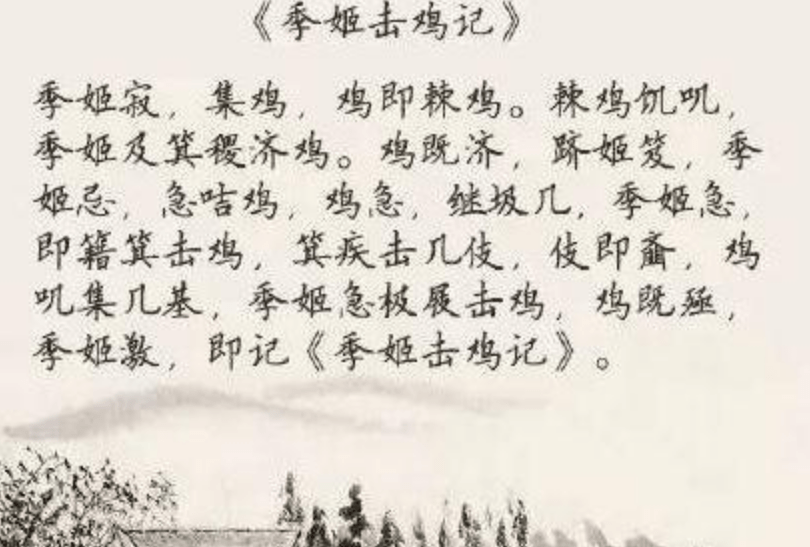 《季姬击鸡记》
季姬寂，集鸡，鸡即棘鸡。棘鸡饥叽，
季姬及箕稷济鸡。鸡既济，跻姬笈，季
姬忌，急咭鸡，鸡急，继圾几，季姬急，
即籍箕击鸡，箕疾击几伎，伎即齑，鸡
叽集几基，季姬急极屐击鸡，鸡既殛，
季姬激，即记《季姬击鸡记》。